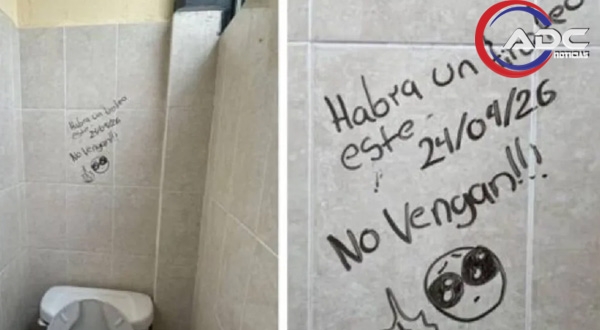 Habra un tiroteo
este
24/04/26
No Vengan!!!
ADC
NOTICIAS
Habra un tiroteo
este
24/04/26
No Vengan!!!